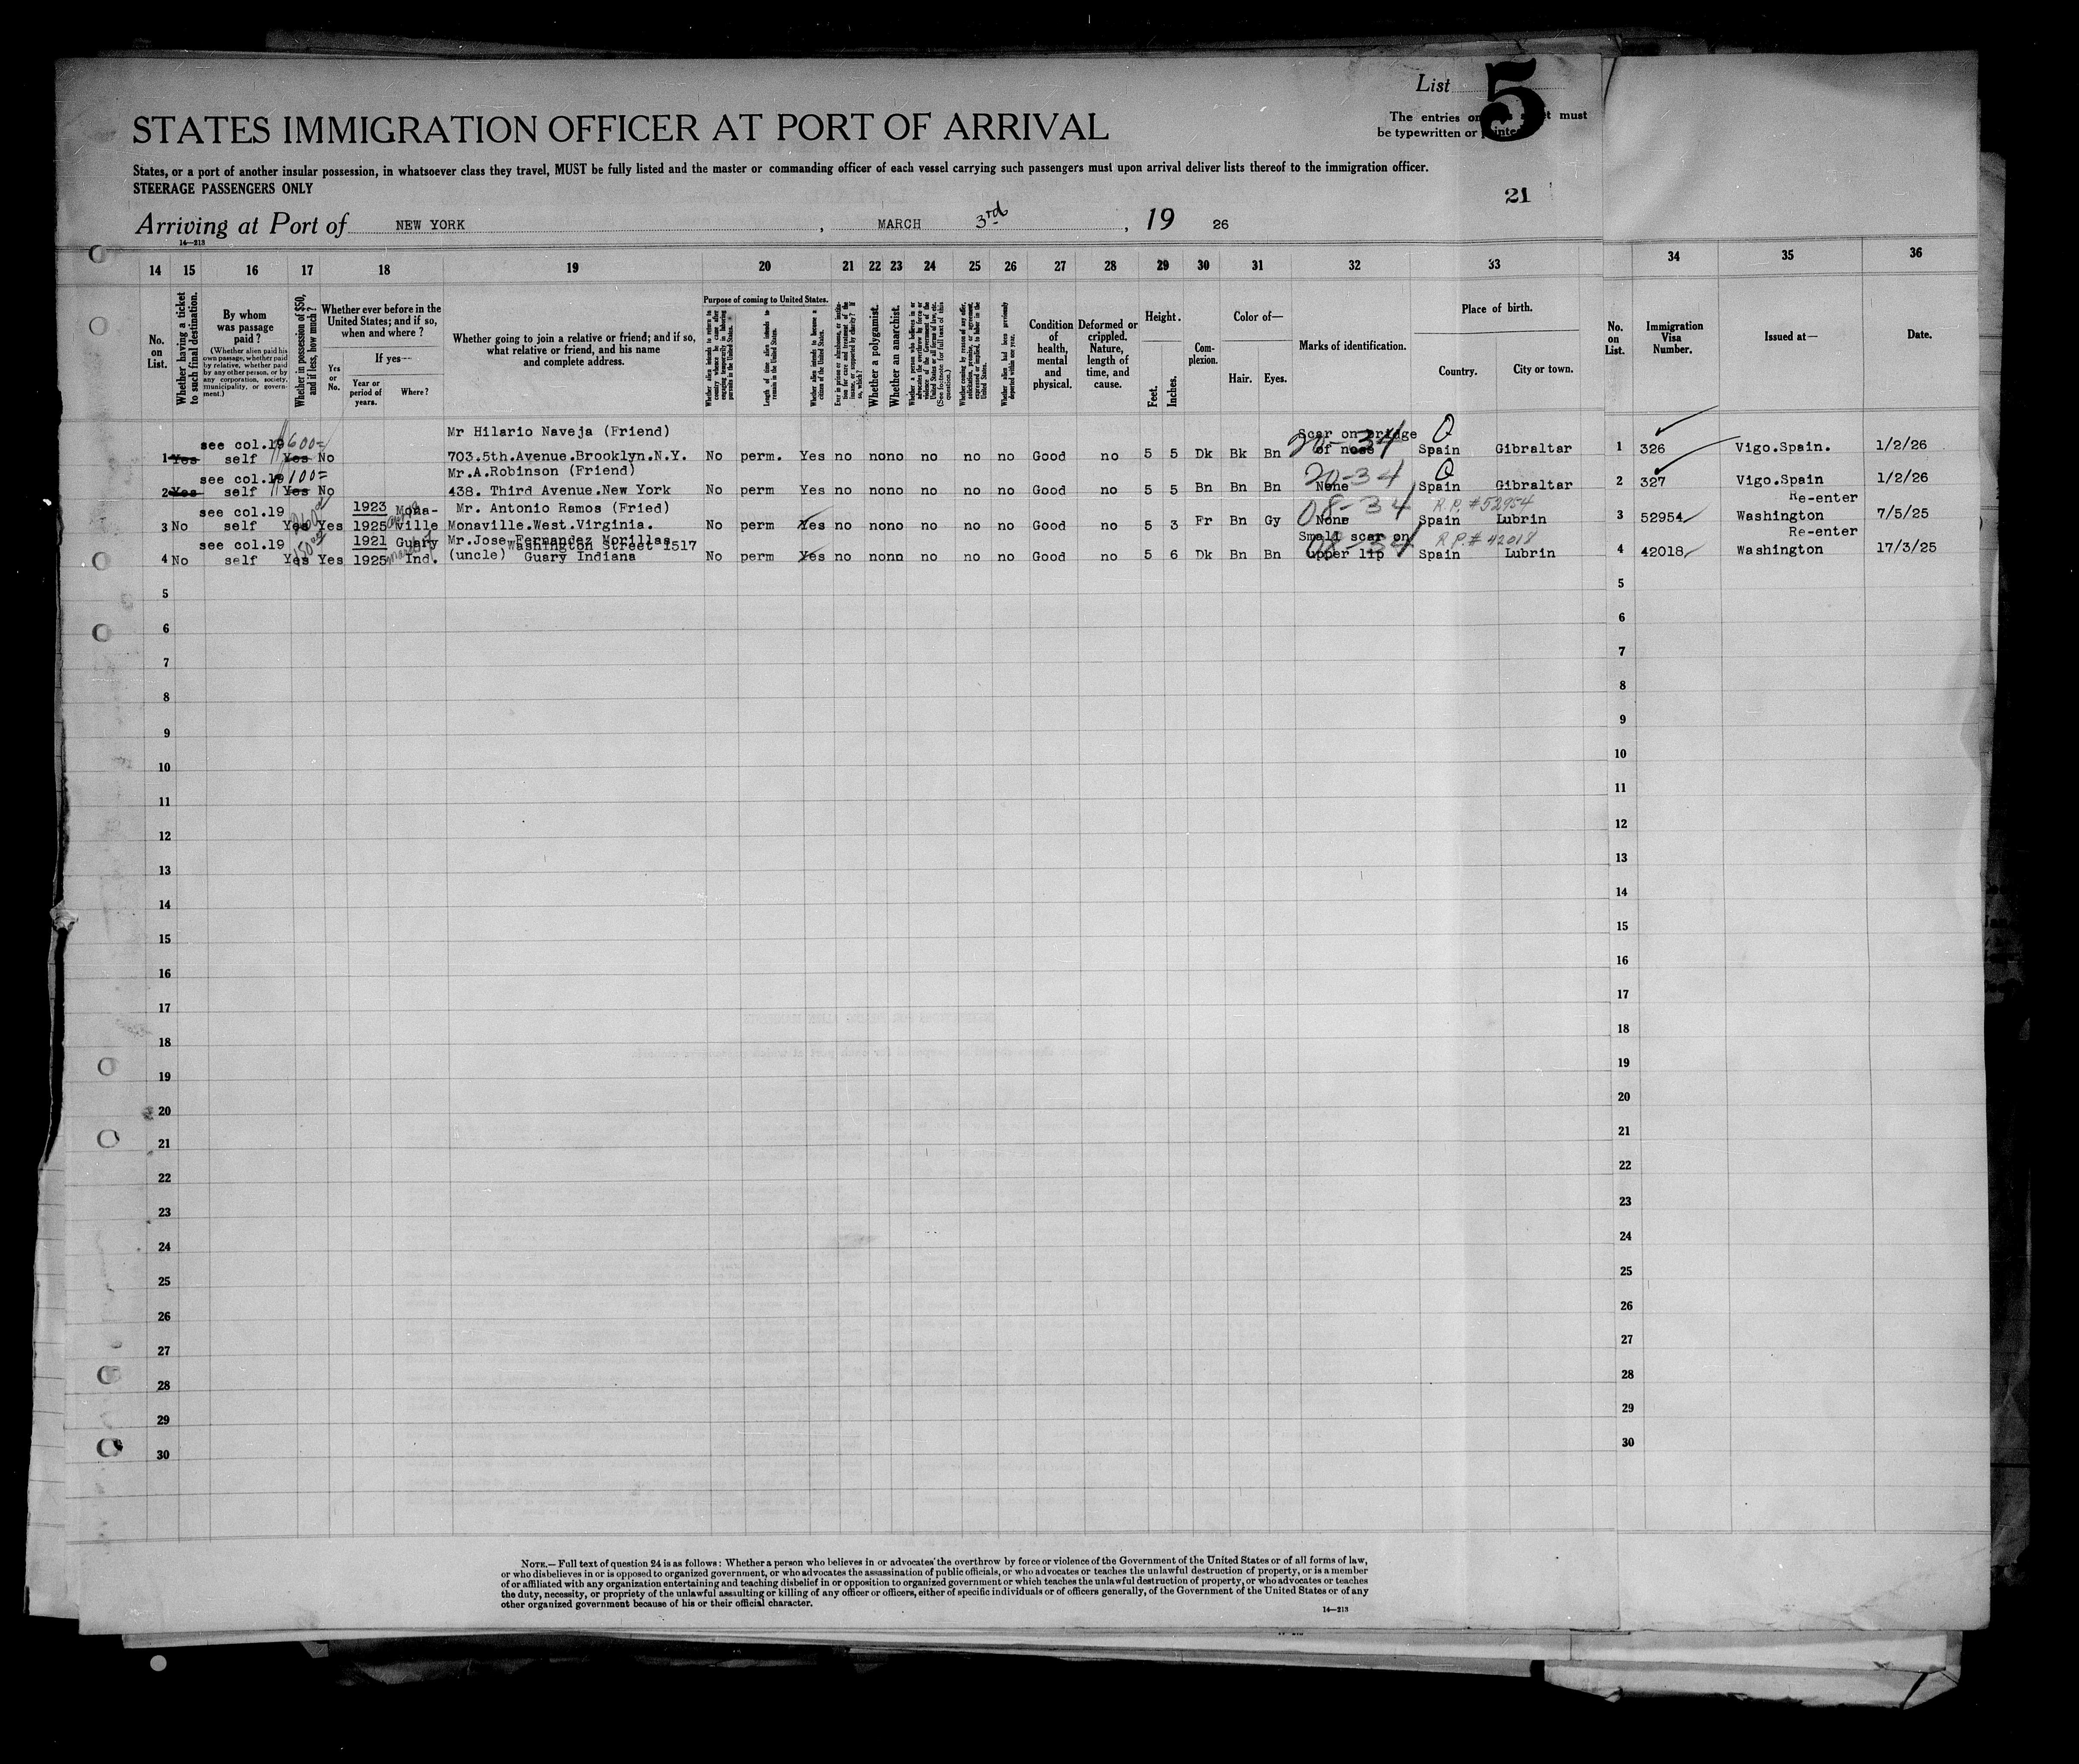 List 5
STATES IMMIGRATION OFFICER AT PORT OF ARRIVAL
The entries on must
be typewritten or
States, or a port of another insular possession, in whatsoever class they travel, MUST be fully listed and the master or commanding officer of each vessel carrying such passengers must upon arrival deliver lists thereof to the immigration officer.
STEERAGE PASSENGERS ONLY
21
Arriving at Port of NEW YORK, MARCH 3rd, 19 26
14—213
14 15 16 17 18 19 20 21 22 23 24 25 26 27 28 29 30 31 32 33 34 35 36
No. on List.
Whether having a ticket to such final destination.
By whom was passage paid?
(Whether alien paid his own passage, whether paid by relative, whether paid by any other person, or by any corporation, society, municipality, or government.)
Whether in possession of $50, and if less, how much?
Whether ever before in the United States; and if so, when and where?
Yes or No.
If yes—
Year or period of years.
Where?
Whether going to join a relative or friend; and if so, what relative or friend, and his name and complete address.
Purpose of coming to United States.
Length of time alien intends to remain in the United States.
Whether alien intends to become a citizen of the United States.
Whether a polygamist.
Whether an anarchist.
Condition of health, mental and physical.
Deformed or crippled. Nature, length of time, and cause.
Height.
Feet.
Inches.
Complexion.
Color of—
Hair.
Eyes.
Marks of identification.
Place of birth.
Country.
City or town.
No. on List.
Immigration Visa Number.
Issued at—
Date.
see col.19 600= Mr Hilario Naveja (Friend) Scar on bridge 20-34 Q
1 Yes self Yes No 703.5th.Avenue.Brooklyn.N.Y. No perm. Yes no no no no no no Good no 5 5 Dk Bk Bn of nose Spain Gibraltar 1 326 Vigo.Spain. 1/2/26
see col.19 100= Mr.A.Robinson (Friend) 20-34 Q
2 Yes self Yes No 438. Third Avenue.New York No perm Yes no no no no no no Good no 5 5 Bn Bn Bn None Spain Gibraltar 2 327 Vigo.Spain 1/2/26
see col.19 1923 Mona- Mr. Antonio Ramos (Fried) 08-34 R.P. #52954 Re-enter
3 No self Yes Yes 1925 ville Monaville.West.Virginia. No perm Yes no no no no no no Good no 5 3 Fr Bn Gy None Spain Lubrin 3 52954 Washington 7/5/25
see col.19 1921 Guary Mr.Jose Fernandez Morillas Washington Street 1517 Small scar on 08-34 R.P.# 42018 Re-enter
4 No self Yes Yes 1925 Ind. (uncle) Guary Indiana No perm Yes no no no no no no Good no 5 6 Dk Bn Bn upper lip Spain Lubrin 4 42018 Washington 17/3/25
5 5
6 6
7 7
8 8
9 9
10 10
11 11
12 12
13 13
14 14
15 15
16 16
17 17
18 18
19 19
20 20
21 21
22 22
23 23
24 24
25 25
26 26
27 27
28 28
29 29
30 30
NOTE.—Full text of question 24 is as follows: Whether a person who believes in or advocates the overthrow by force or violence of the Government of the United States or of all forms of law,
or who disbelieves in or is opposed to organized government, or who advocates the assassination of public officials, or who advocates or teaches the unlawful destruction of property, or is a member
of or affiliated with any organization entertaining and teaching disbelief in or opposition to organized government or which teaches the unlawful destruction of property, or who advocates or teaches
the duty, necessity, or propriety of the unlawful assaulting or killing of any officer or officers, either of specific individuals or of officers generally, of the Government of the United States or of any
other organized government because of his or their official character.
14—213